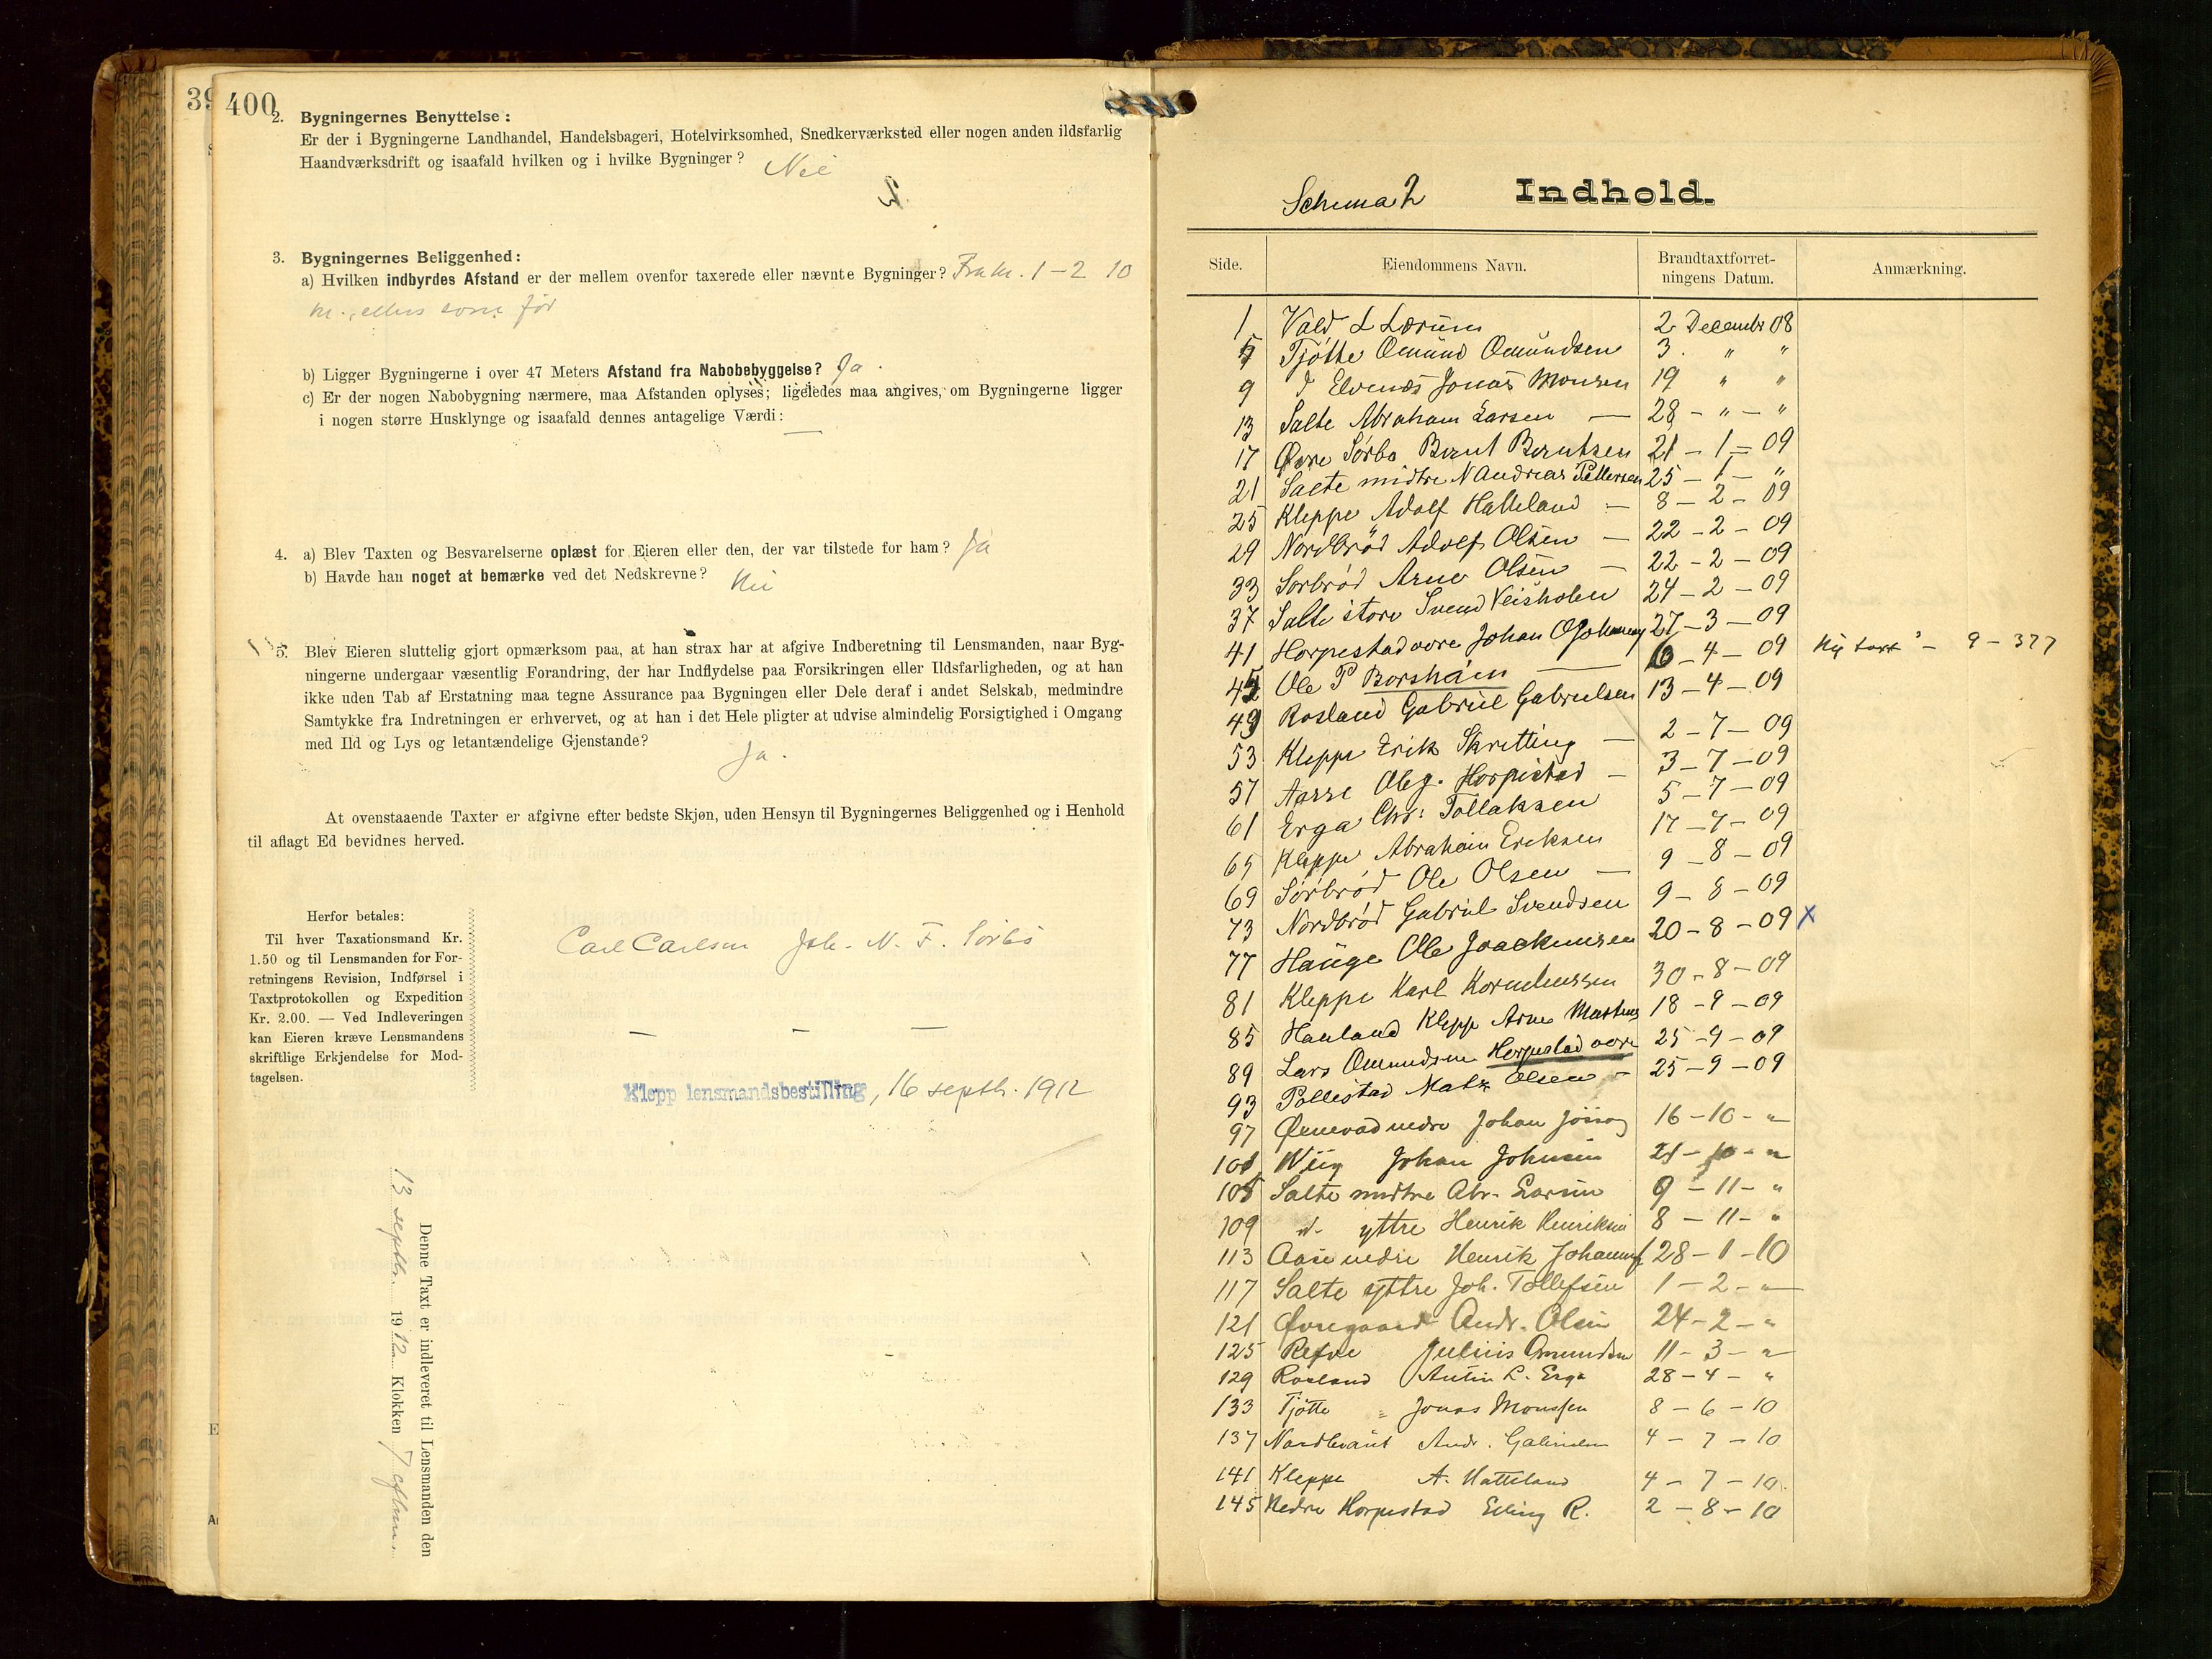 39
400
2. Bygningernes Benyttelse:
Er der i Bygningerne Landhandel, Handelsbageri, Hotelvirksomhed, Snedkerværksted eller nogen anden ildsfarlig
Haandværksdrift og isaafald hvilken og i hvilke Bygninger? Nei
3. Bygningernes Beliggenhed:
a) Hvilken indbyrdes Afstand er der mellem ovenfor taxerede eller nævnte Bygninger? Fra nr. 1-2 10
m., ellers som før
b) Ligger Bygningerne i over 47 Meters Afstand fra Nabobebyggelse? Ja.
c) Er der nogen Nabobygning nærmere, maa Afstanden oplyses; ligeledes maa angives, om Bygningerne ligger
i nogen større Husklynge og isaafald dennes antagelige Værdi: —
4. a) Blev Taxten og Besvarelserne oplæst for Eieren eller den, der var tilstede for ham? Ja
b) Havde han noget at bemærke ved det Nedskrevne? Nei
5. Blev Eieren sluttelig gjort opmærksom paa, at han strax har at afgive Indberetning til Lensmanden, naar Byg-
ningerne undergaar væsentlig Forandring, der har Indflydelse paa Forsikringen eller Ildsfarligheden, og at han
ikke uden Tab af Erstatning maa tegne Assurance paa Bygningen eller Dele deraf i andet Selskab, medmindre
Samtykke fra Indretningen er erhvervet, og at han i det Hele pligter at udvise almindelig Forsigtighed i Omgang
med Ild og Lys og letantændelige Gjenstande? Ja.
At ovenstaaende Taxter er afgivne efter bedste Skjøn, uden Hensyn til Bygningernes Beliggenhed og i Henhold
til aflagt Ed bevidnes herved.
Herfor betales:
Til hver Taxationsmand Kr.
1.50 og til Lensmanden for For-
retningens Revision, Indførsel i
Taxtprotokollen og Expedition
Kr. 2.00. — Ved Indleveringen
kan Eieren kræve Lensmandens
skriftlige Erkjendelse for Mod-
tagelsen.
Carl Carlsen Joh. N. F. Sørbø
— — —
Klepp lensmandsbestilling, 16 septbr. 1912
Denne Taxt er indleveret til Lensmanden den
13 septbr. 1912 Klokken 7 efterm.
Schema 2 Indhold.
Side. Eiendommens Navn. Brandtaxtforret-
ningens Datum. Anmærkning.
1 Vald L Lærum 2 December 08
5 Tjøtte Omund Omundsen 3. " "
9 Elvenæs Jonas Monsen 19 " "
13 Salte Abraham Larsen — 28 - " - "
17 Øvre Sørbø Bernt Berntsen 21 - 1 - 09
21 Salte midtre N Andreas Pettersen 25 - 1 - "
25 Kleppe Adolf Hatteland — 8 - 2 - 09
29 Nordbrød Adolf Olsen — 22 - 2 - 09
33 Sørbrød Arne Olsen — 22 - 2 - 09
37 Salte store Svend Veisholen 24 - 2 - 09
41 Horpestad øvre Johan O 27 - 3 - 09
45 Ole P Borsheim — 6 - 4 - 09 Ny taxt - 9 - 377
49 Rosland Gabriel Gabrielsen 13 - 4 - 09
53 Kleppe Erik Skretting — 2 - 7 - 09
57 Aarre Ole G. Horpestad — 3 - 7 - 09
61 Erga Chr. Tollaksen 5 - 7 - 09
65 Kleppe Abraham Eriksen 17 - 7 - 09
69 Sørbrød Ole Olsen — 9 - 8 - 09
73 Nordbrød Gabriel Svendsen 9 - 8 - 09
77 Hauge Ole Joackimsen 20 - 8 - 09 x
81 Kleppe Karl Korneliussen 30 - 8 - 09
85 Hauland Klepp Arne 18 - 9 - 09
89 Lars Omundsen Horpestad øvre 25 - 9 - 09
93 Pollestad Matz Olsen — 25 - 9 - 09
97 Øxnevad nedre Johan 16 - 10 - "
101 Wiig Johan Johnsen 21 - 10 - "
105 Salte midtre Abr. Larsen 9 - 11 - "
109 d. yttre Henrik Henriksen 8 - 11 - "
113 Aase nedre Henrik 28 - 1 - 10
117 Salte yttre Joh. Tollefsen 1 - 2 - "
121 Øvregaard Andr. Olsen 24 - 2 - "
125 Refve Julius Omundsen 11 - 3 - "
129 Rosland Antin L. Erga 28 - 4 - "
133 Tjøtte Jonas Monssen 8 - 6 - 10
137 Andr. Gabrielsen 4 - 7 - 10
141 Kleppe A. Hatteland 4 - 7 - 10
145 Nedre Horpestad Elling R. 2 - 8 - 10